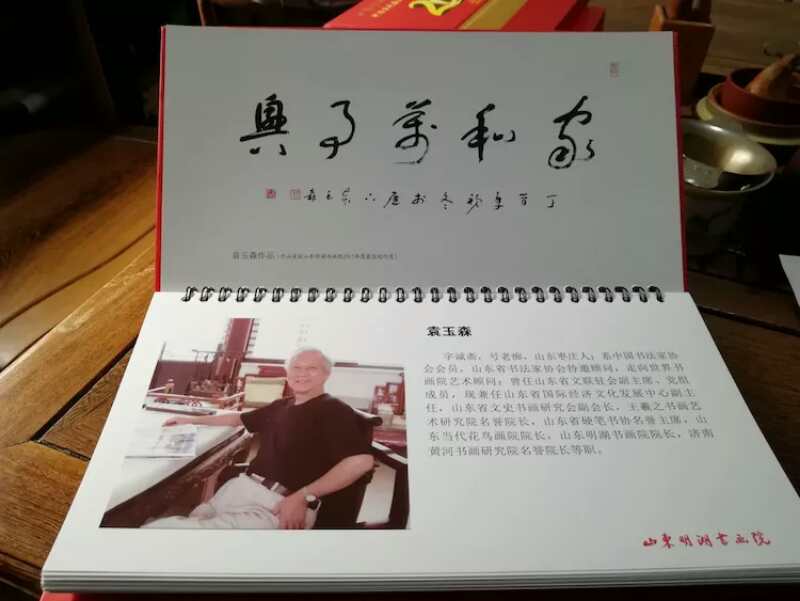 家和萬事興
丁酉年初冬於
袁玉森作品
袁玉森
字诚斋，号老痴，山东枣庄人；系中国书法家协
会会员，山东省书法家协会特邀顾问，走向世界书
画院艺术顾问；曾任山东省文联驻会副主席、党组
成员，现兼任山东省国际经济文化发展中心副主
任，山东省文史书画研究会副会长，王羲之书画艺
术研究院名誉院长，山东省硬笔书协名誉主席，山
东当代花鸟画院院长，山东明湖书画院院长，济南
黄河书画研究院名誉院长等职。
山东明湖书画院